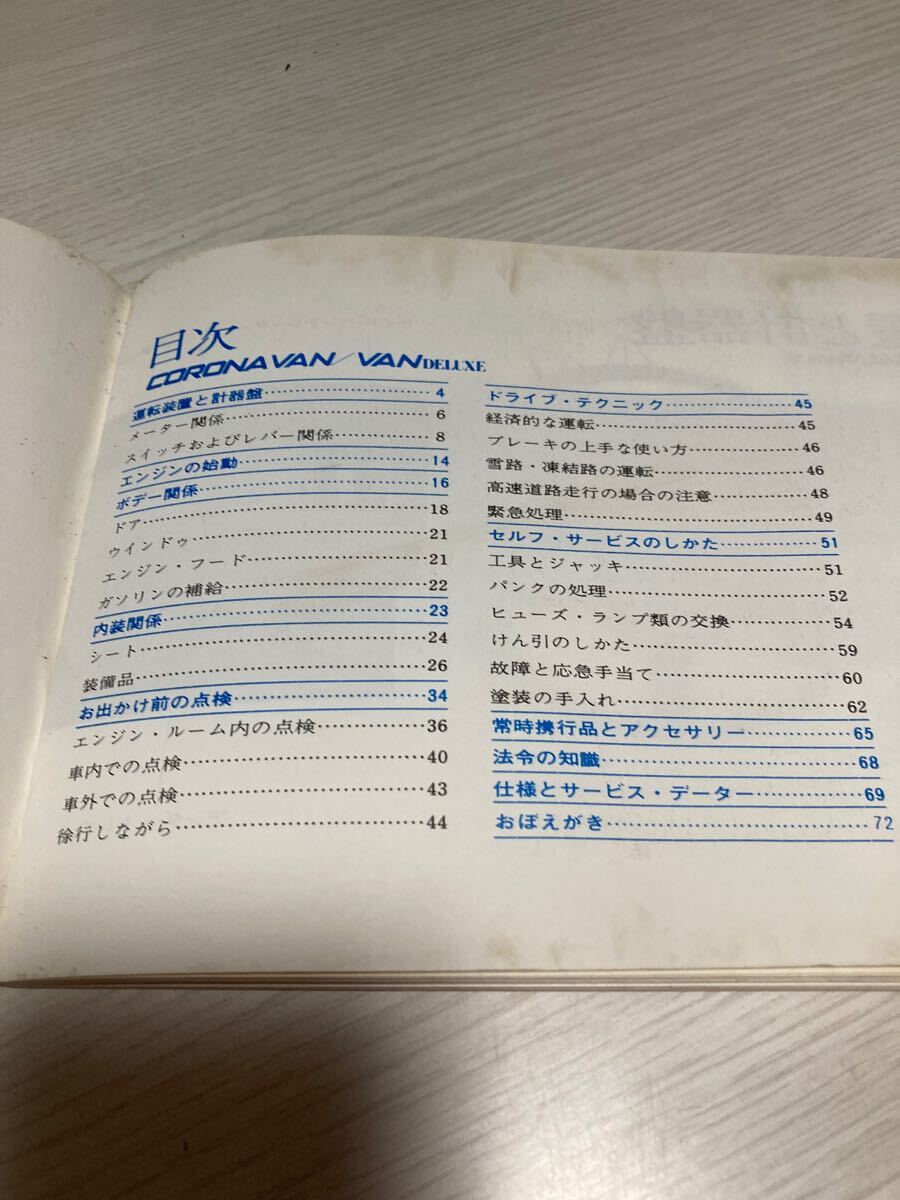 目次
CORONA VAN/VAN DELUXE
運転装置と計器盤……………………4
メーター関係……………………6
スイッチおよびレバー関係……………8
エンジンの始動……………………14
ボデー関係……………………16
ドア……………………18
ウインドゥ……………………21
エンジン・フード……………………21
ガソリンの補給……………………22
内装関係……………………23
シート……………………24
装備品……………………26
お出かけ前の点検……………………34
エンジン・ルーム内の点検……………36
車内での点検……………………40
車外での点検……………………43
徐行しながら……………………44
ドライブ・テクニック……………45
経済的な運転……………………45
ブレーキの上手な使い方……………46
雪路・凍結路の運転……………46
高速道路走行の場合の注意……………48
緊急処理……………………49
セルフ・サービスのしかた……………51
工具とジャッキ……………………51
パンクの処理……………………52
ヒューズ・ランプ類の交換……………54
けん引のしかた……………………59
故障と応急手当て……………………60
塗装の手入れ……………………62
常時携行品とアクセサリー……………65
法令の知識……………………68
仕様とサービス・データー……………69
おぼえがき……………………72